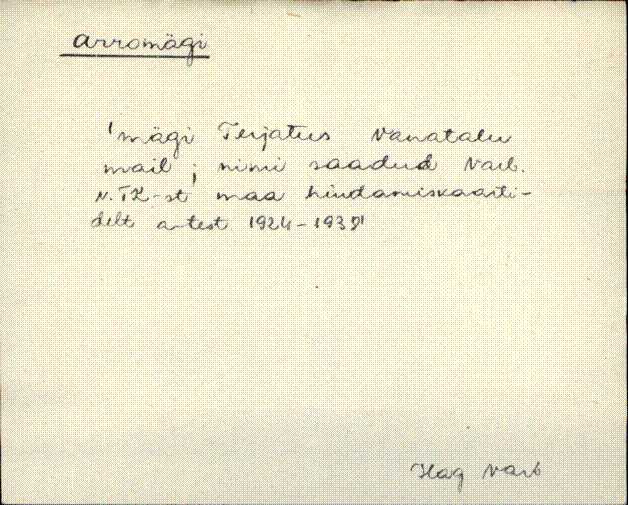 arromägi
'mägi Terjatus Vanatalu
mail; nimi saadud Varb.
v. TK-st maa hindamiskaarti-
delt a-test 1924-1939'
Hag Varb